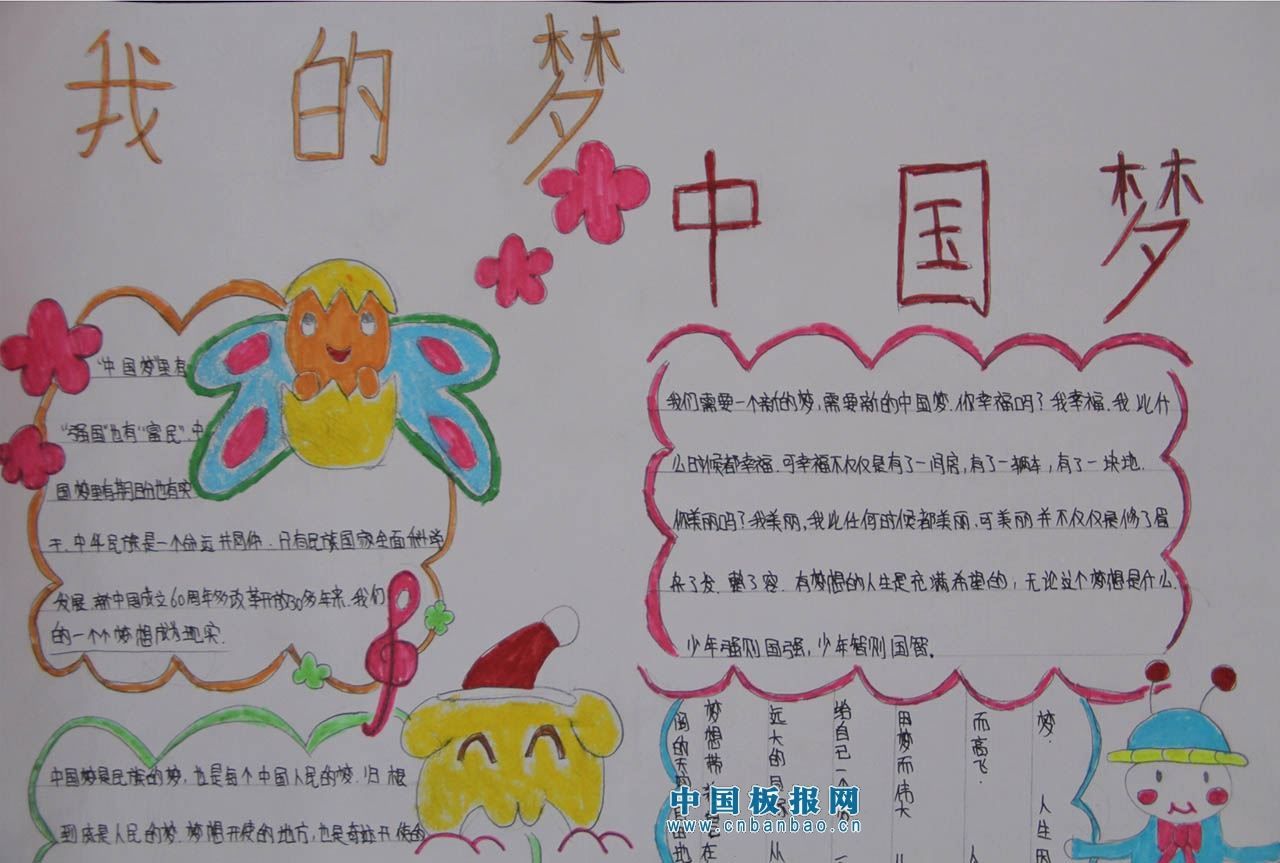 我的梦
中国梦
“中国梦”里有
“强国”也有“富民”.中
国梦里有期盼也有实
干.中华民族是一个命运共同体.只有民族国家全面科学
发展.新中国成立60周年多改革开的30多年来.我们
的一个个梦想成为现实.
中国梦是民族的梦,也是每个中国人民的梦.归根
到底是人民的梦.梦想开使的地方,也是奇迹开使的
我们需要一个新的梦,需要新的中国梦.你幸福吗?我幸福.我比什
么时候都幸福.可幸福不仅仅是有了一间房,有了一辆车,有了一块地.
你美丽吗?我美丽,我比任何时候都美丽,可美丽并不仅仅是修了眉
染了发.整了容.有梦想的人生是充满希望的,无论这个梦想是什么.
少年强则国强,少年智则国智。
梦.人生因
而高飞.人
用梦而伟大
给自己一个
远大的
梦想带
中国板报网
www.cnbanbao.cn